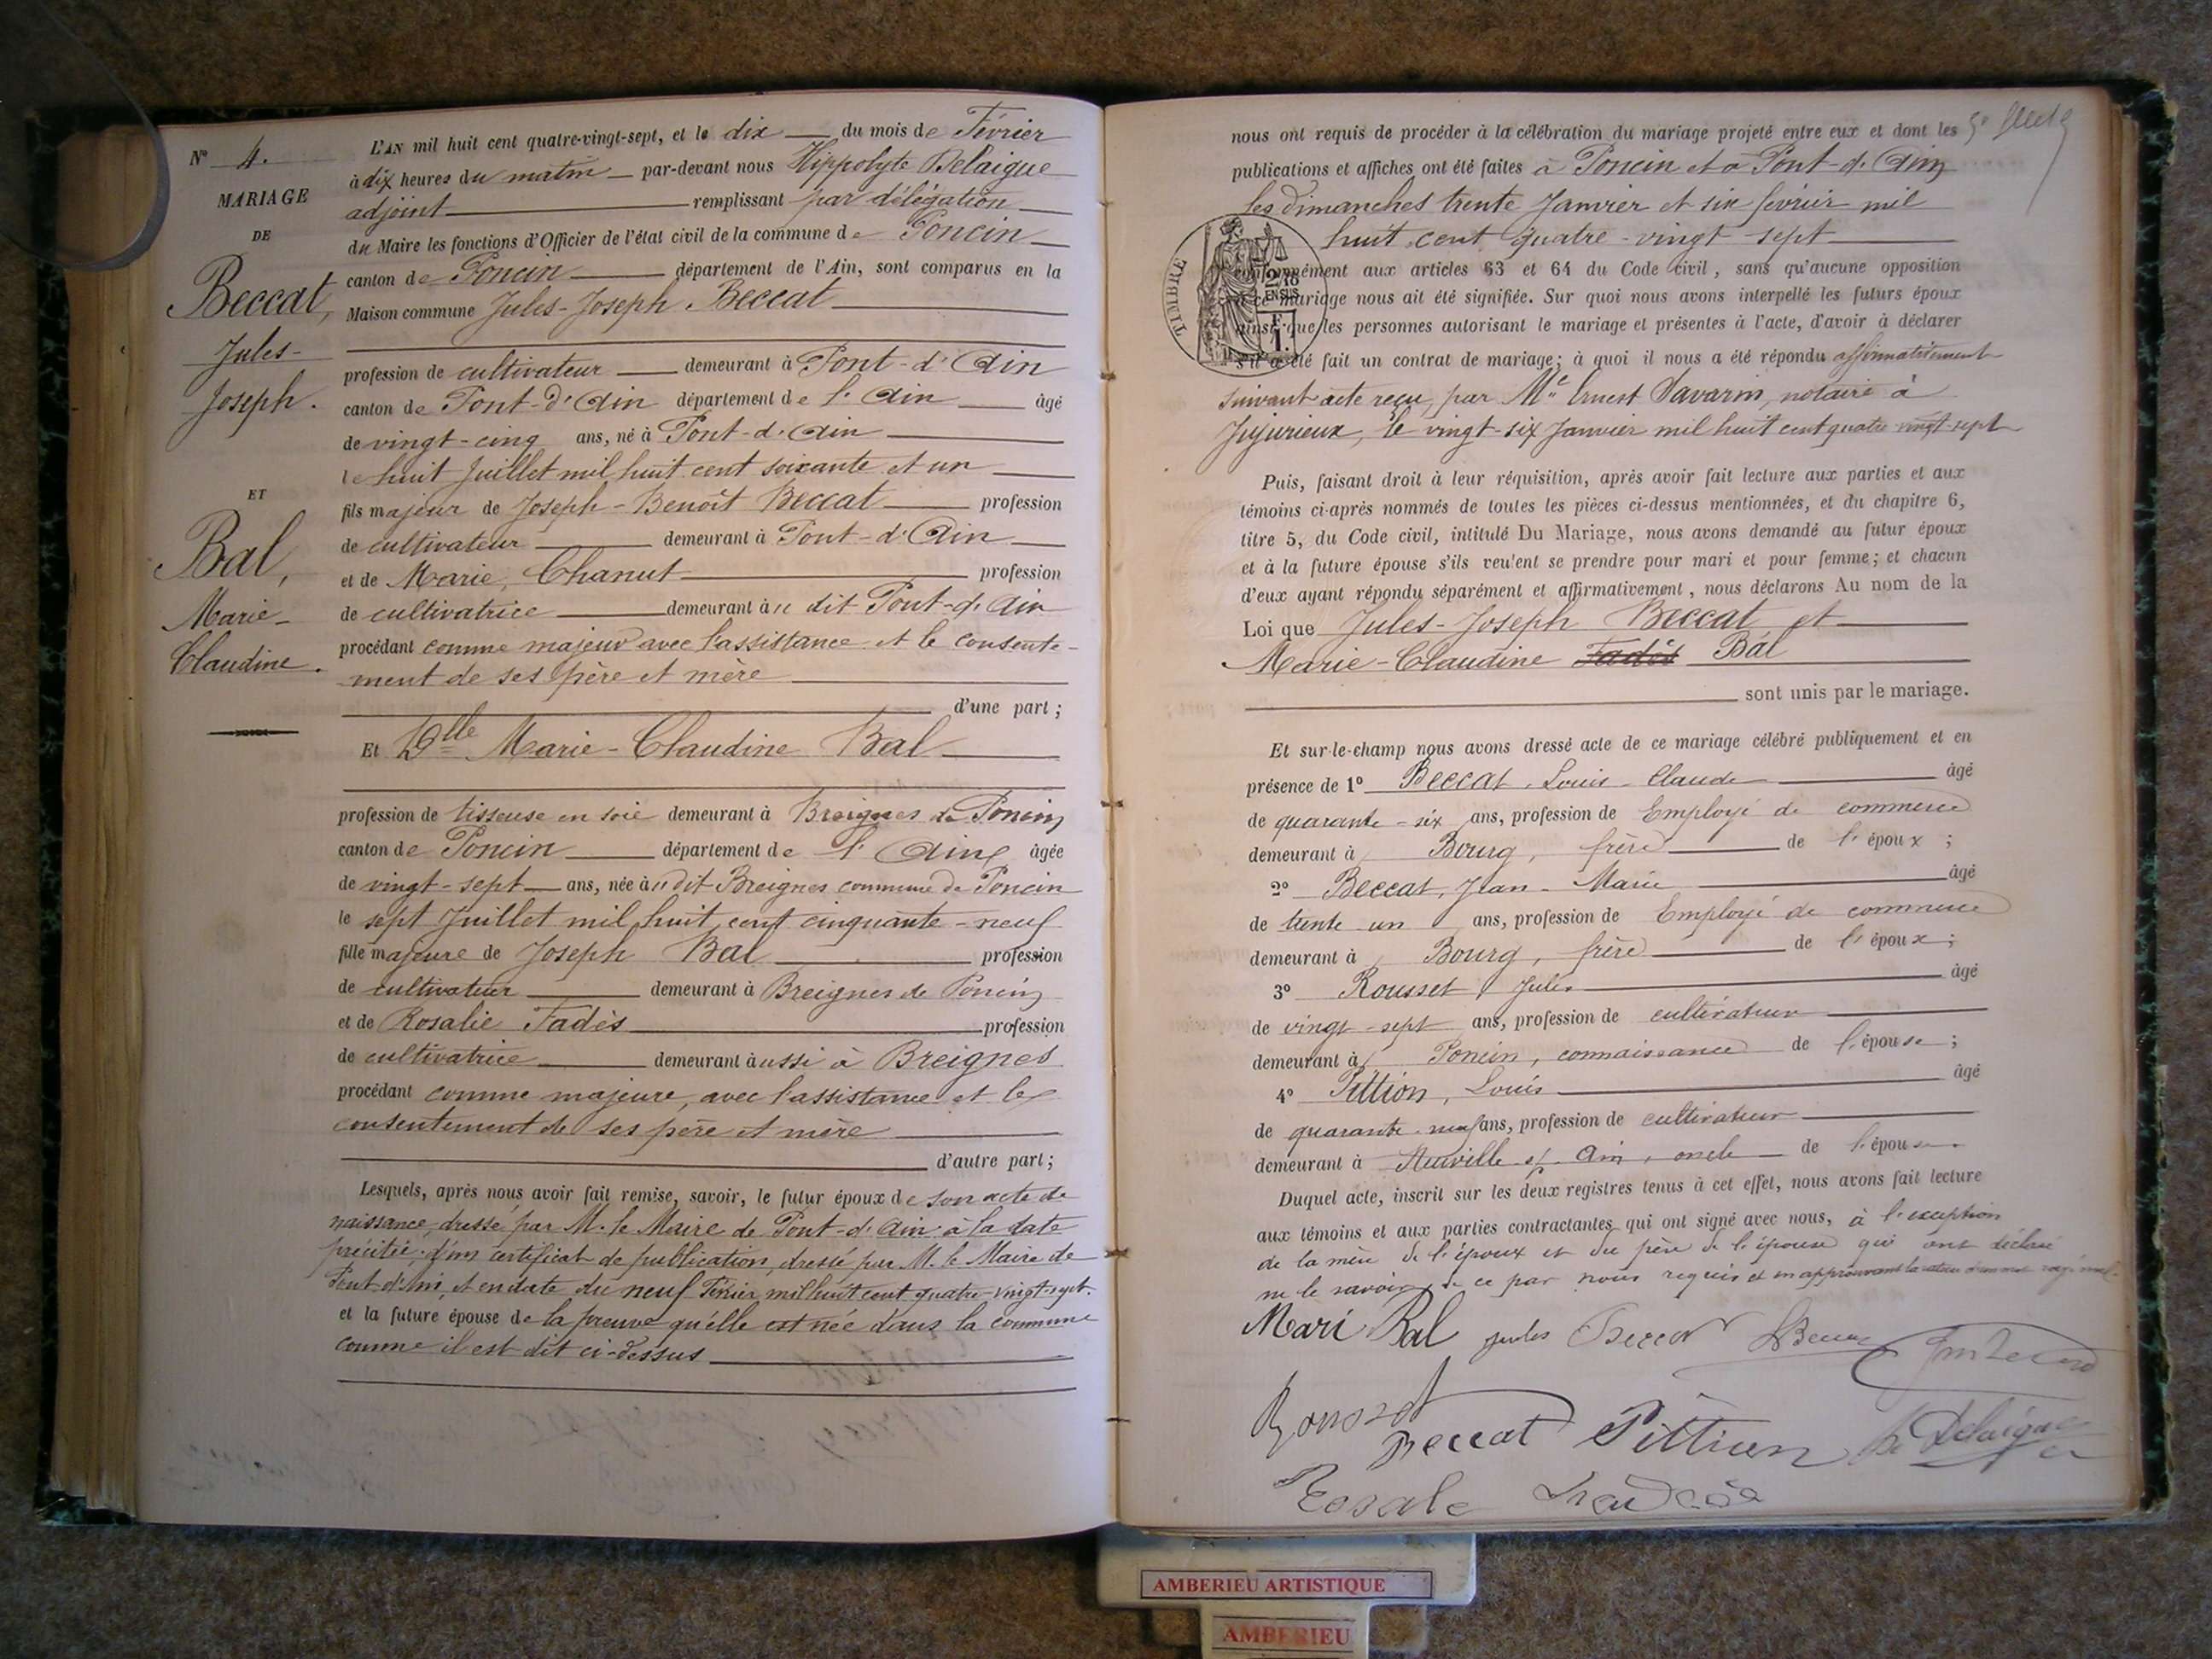 N° 4.
MARIAGE
DE
Beccat,
Jules-
Joseph.
ET
Bal,
Marie-
Claudine.
L'AN mil huit cent quatre-vingt-sept, et le dix du mois de Février
à dix heures du matin par-devant nous Hippolyte Delaigue
adjoint remplissant par délégation
du Maire les fonctions d'Officier de l'état civil de la commune de Poncin
canton de Poncin département de l'Ain, sont comparus en la
Maison commune Jules-Joseph Beccat
profession de cultivateur demeurant à Pont-d'Ain
canton de Pont-d'Ain département de l'Ain âgé
de vingt-cinq ans, né à Pont-d'Ain
le huit Juillet mil huit cent soixante et un
fils majeur de Joseph-Benoît Beccat profession
de cultivateur demeurant à Pont-d'Ain
et de Marie, Chanut profession
de cultivatrice demeurant au dit Pont-d'Ain
procédant comme majeur avec l'assistance et le consente-
ment de ses père et mère
d'une part;
Et Dlle Marie-Claudine Bal
profession de tisseuse en soie demeurant à Breignes de Poncin
canton de Poncin département de l'Ain âgée
de vingt-sept ans, née àu dit Breignes commune de Poncin
le sept Juillet mil huit cent cinquante-neuf
fille majeure de Joseph Bal profession
de cultivateur demeurant à Breignes de Poncin
et de Rosalie Fadès profession
de cultivatrice demeurant àussi à Breignes
procédant comme majeure, avec l'assistance et le
consentement de ses père et mère
d'autre part;
Lesquels, après nous avoir fait remise, savoir, le futur époux de son acte de
naissance, dressé par M. le Maire de Pont-d'Ain à la date
précitée; d'un certificat de publication, dressé par M. le Maire de
Pont-d'Ain, et en date du neuf Février mil huit cent quatre-vingt-sept.
et la future épouse de la preuve qu'elle est née dans la commune
comme il est dit ci-dessus
nous ont requis de procéder à la célébration du mariage projeté entre eux et dont les
publications et affiches ont été faites à Poncin et à Pont-d'Ain
les dimanches trente Janvier et six février mil
huit cent quatre-vingt-sept
TIMBRE
2/10
EN SUS
F.
1.
conformément aux articles 63 et 64 du Code civil, sans qu'aucune opposition
à ce mariage nous ait été signifiée. Sur quoi nous avons interpellé les futurs époux
ainsi que les personnes autorisant le mariage et présentes à l'acte, d'avoir à déclarer
s'il a été fait un contrat de mariage; à quoi il nous a été répondu affirmativement
suivant acte reçu, par Me Ernest Savarin, notaire à
Jujurieux, le vingt-six Janvier mil huit cent quatre vingt-sept
Puis, faisant droit à leur réquisition, après avoir fait lecture aux parties et aux
témoins ci-après nommés de toutes les pièces ci-dessus mentionnées, et du chapitre 6,
titre 5, du Code civil, intitulé Du Mariage, nous avons demandé au futur époux
et à la future épouse s'ils veulent se prendre pour mari et pour femme; et chacun
d'eux ayant répondu séparément et affirmativement, nous déclarons Au nom de la
Loi que Jules-Joseph Beccat et
Marie-Claudine Fadès Bal
sont unis par le mariage.
Et sur-le-champ nous avons dressé acte de ce mariage célébré publiquement et en
présence de 1° Beccat, Louis-Claude âgé
de quarante-six ans, profession de Employé de commerce
demeurant à Bourg, frère de l'époux;
2° Beccat, Jean-Marie âgé
de trente un ans, profession de Employé de commerce
demeurant à Bourg, frère de l'époux;
3° Rousset Jules âgé
de vingt-sept ans, profession de cultivateur
demeurant à Poncin, connaissance de l'épouse;
4° Pittion, Louis âgé
de quarante-neuf ans, profession de cultivateur
demeurant à Neuville s/ Ain, oncle de l'épouse.
Duquel acte, inscrit sur les deux registres tenus à cet effet, nous avons fait lecture
aux témoins et aux parties contractantes qui ont signé avec nous, à l'exception
de la mère de l'époux et du père de l'épouse qui ont déclaré
ne le savoir, de ce par nous requis et en approuvant la rature d'un mot rayé nul.
Mari Bal Jules Beccat
Rousset
Beccat Pittion Delaigue
Rosale
AMBERIEU ARTISTIQUE
AMBERIEU